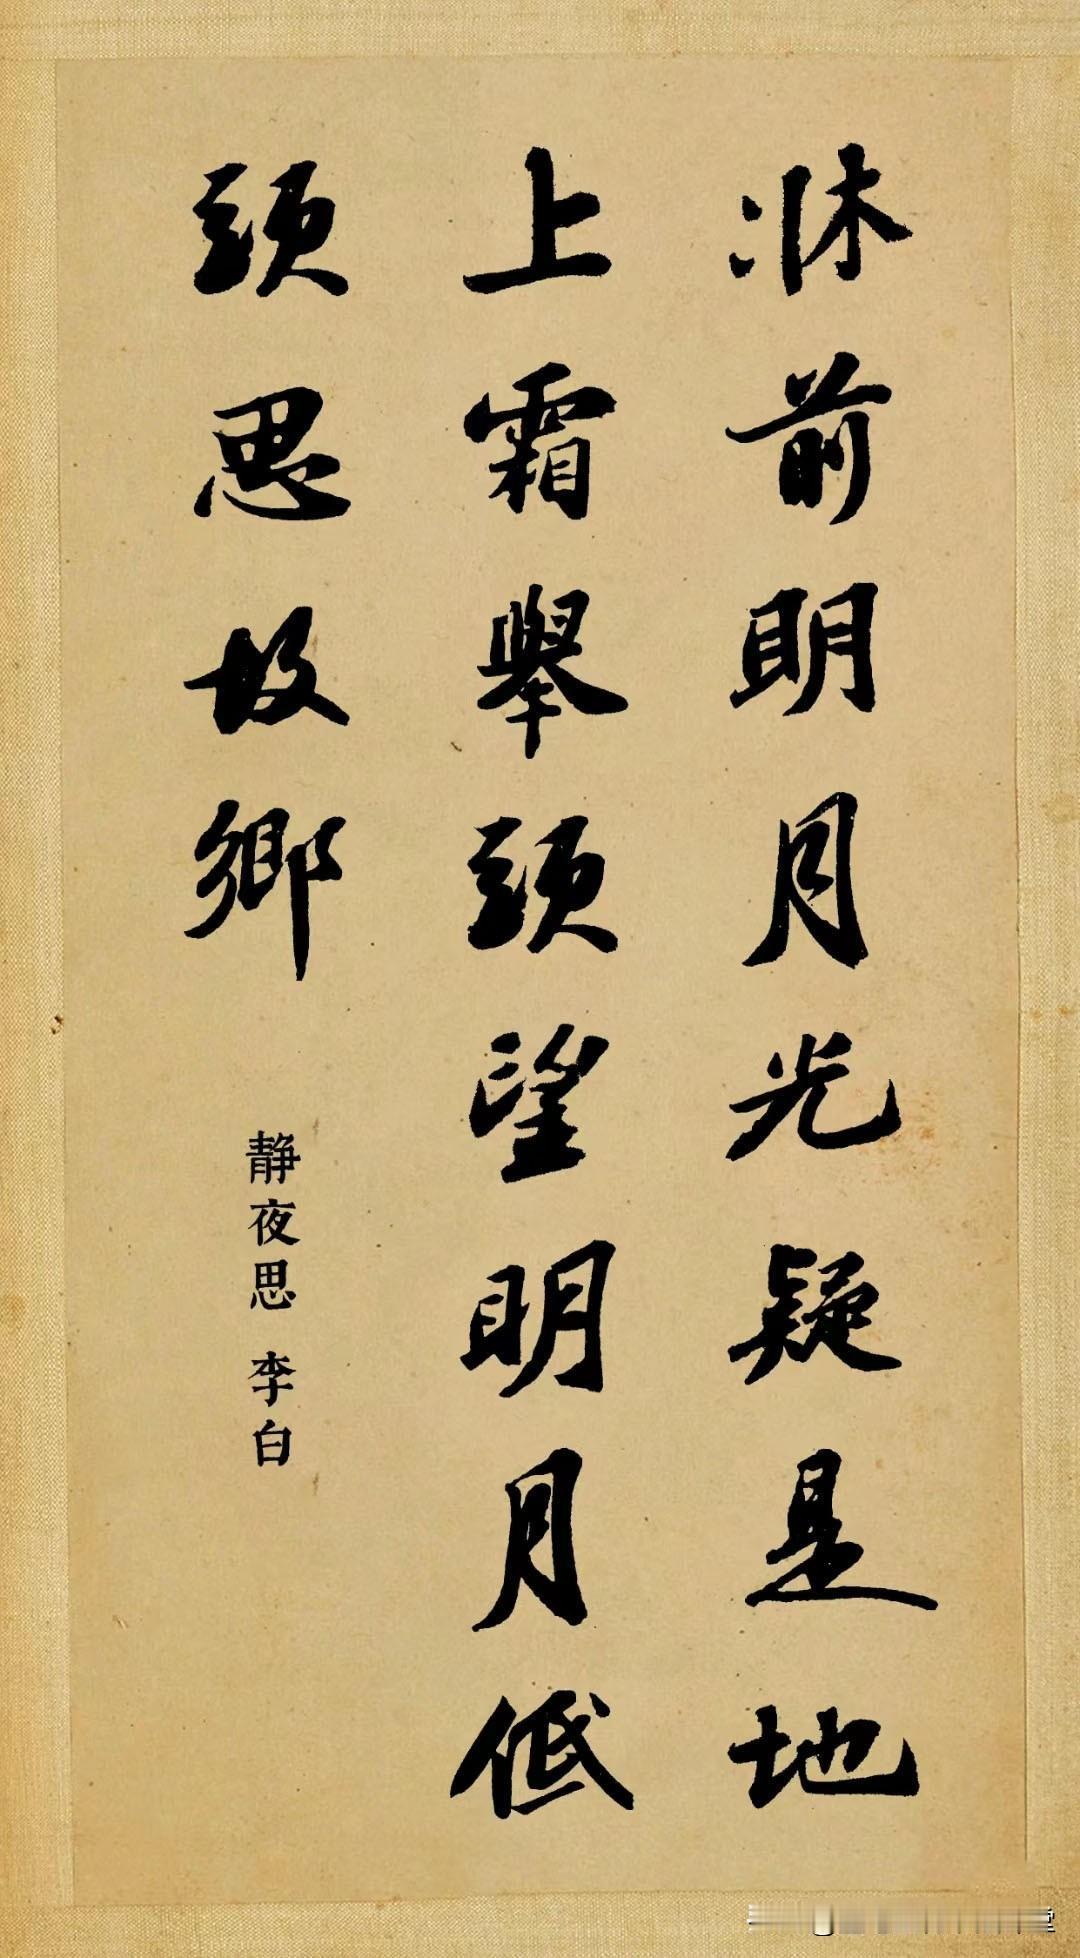 牀前明月光疑是地
上霜舉頭望明月低
頭思故鄉
静夜思 李白